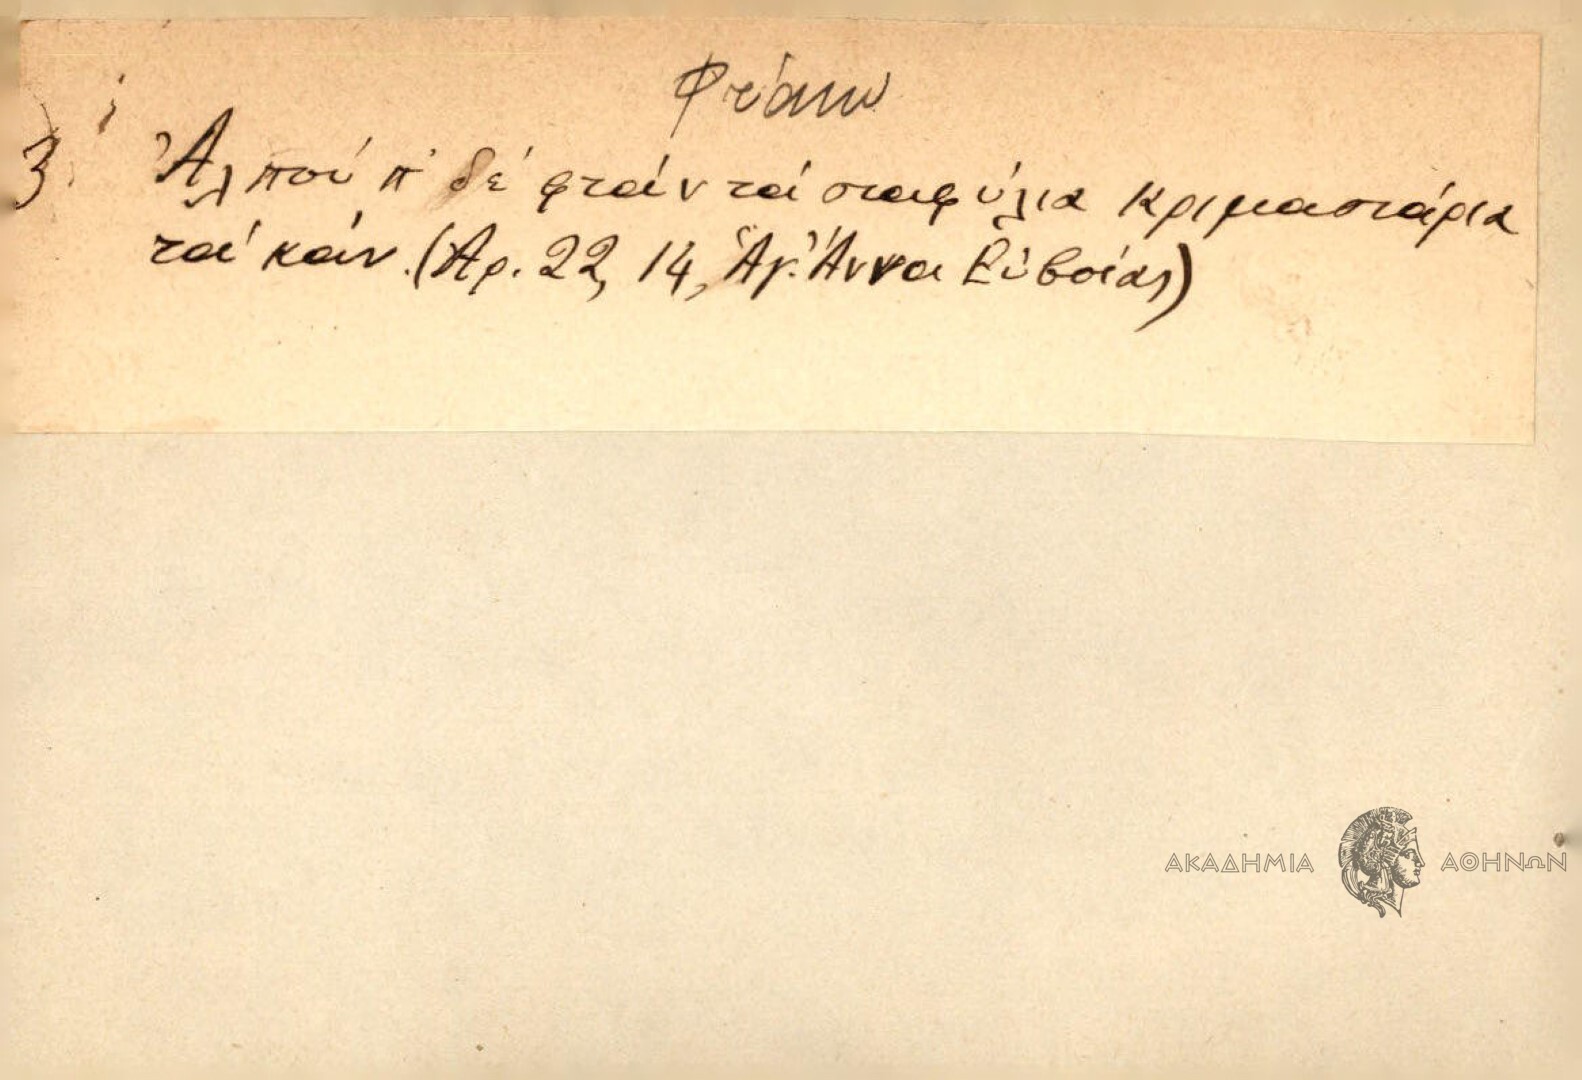 Φτάνω
3. Ἀλποὺ π' δὲ φτάν τὰ σταφύλια κριμαστάρια
τὰ κάν. (Ἀρ. 22, 14, Ἁγ. Ἄννα Εὐβοίας)
ΑΚΑΔΗΜΙΑ ΑΘΗΝΩΝ